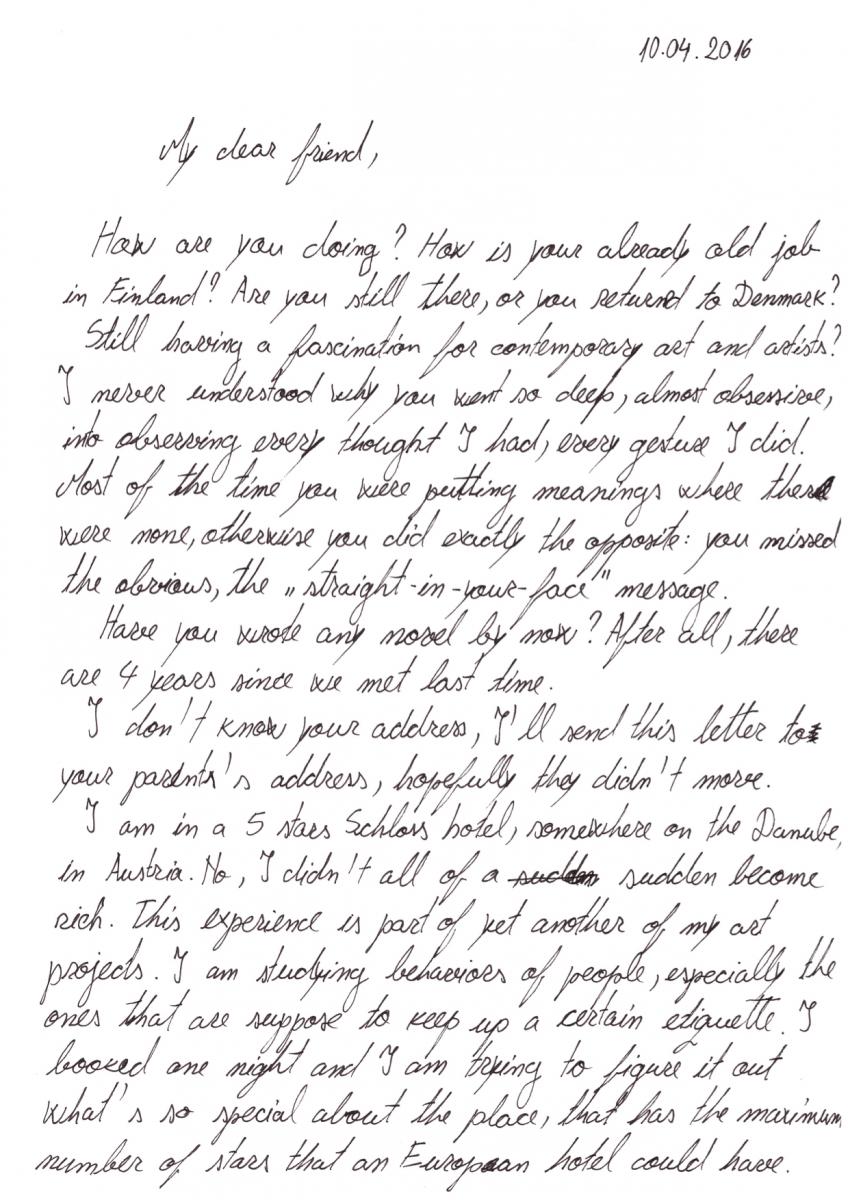 10.04.2016
My dear friend,
How are you doing? How is your already old job
in Finland? Are you still there, or you returnd to Denmark?
Still having a fascination for contemporary art and artists?
I never understood why you went so deep, almost obsessive,
into observing every thought I had, every gesture I did.
Most of the time you were putting meanings where there
were none, otherwise you did exactly the opposite: you missed
the obvious, the „straight-in-your-face" message.
Have you wrote any novel by now? After all, there
are 4 years since we met last time.
I don't know your address, I'll send this letter to
your parents's address, hopefully they didn't move.
I am in a 5 stars Schloss hotel, somewhere on the Danube,
in Austria. No, I didn't all of a sudden become
rich. This experience is part of yet another of my art
projects. I am studying behaviors of people, especially the
ones that are suppose to keep up a certain etiquette. I
booked one night and I am trying to figure it out
what's so special about the place, that has the maximum
number of stars that an European hotel could have.